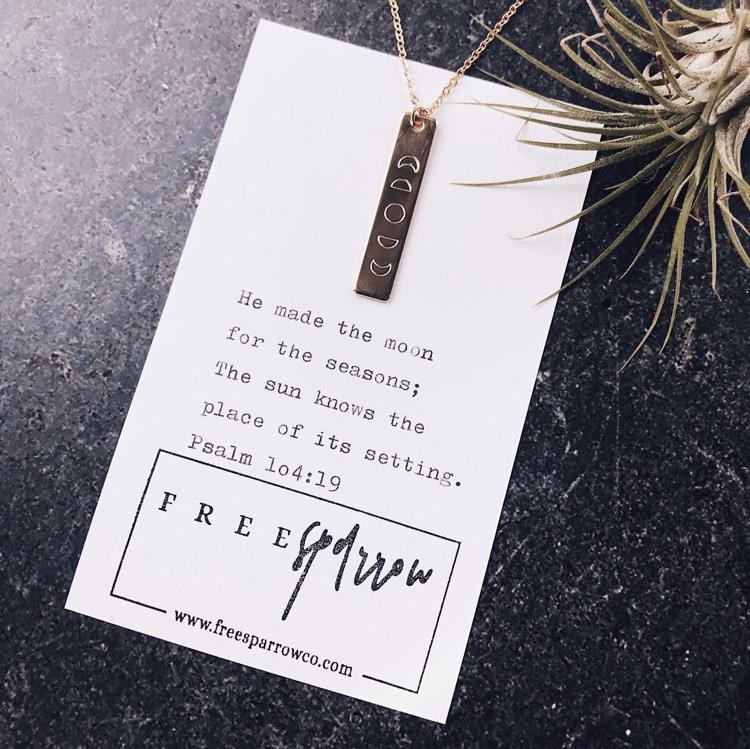 He made the moon
for the seasons;
The sun knows the
place of its setting.
Psalm 1o4:19
FREE sparrow
www.freesparrowco.com